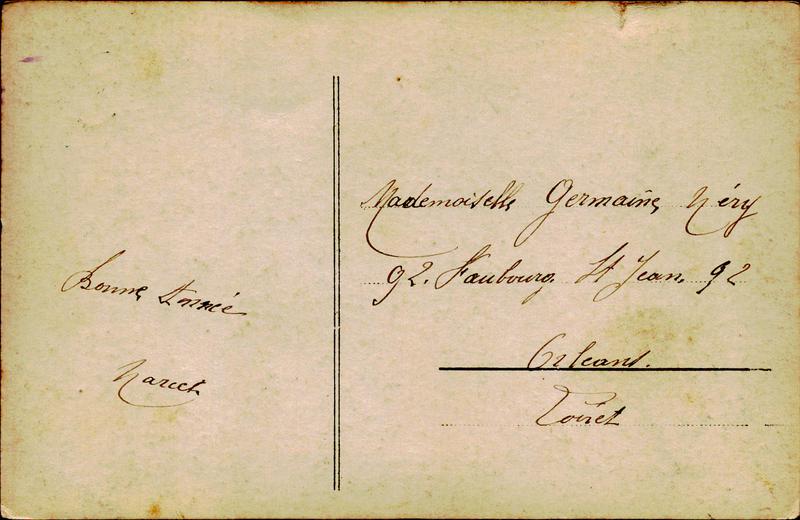 Bonne Année
Marcel
Mademoiselle Germaine Néry
92. Faubourg St Jean. 92
Orléans.
Loiret